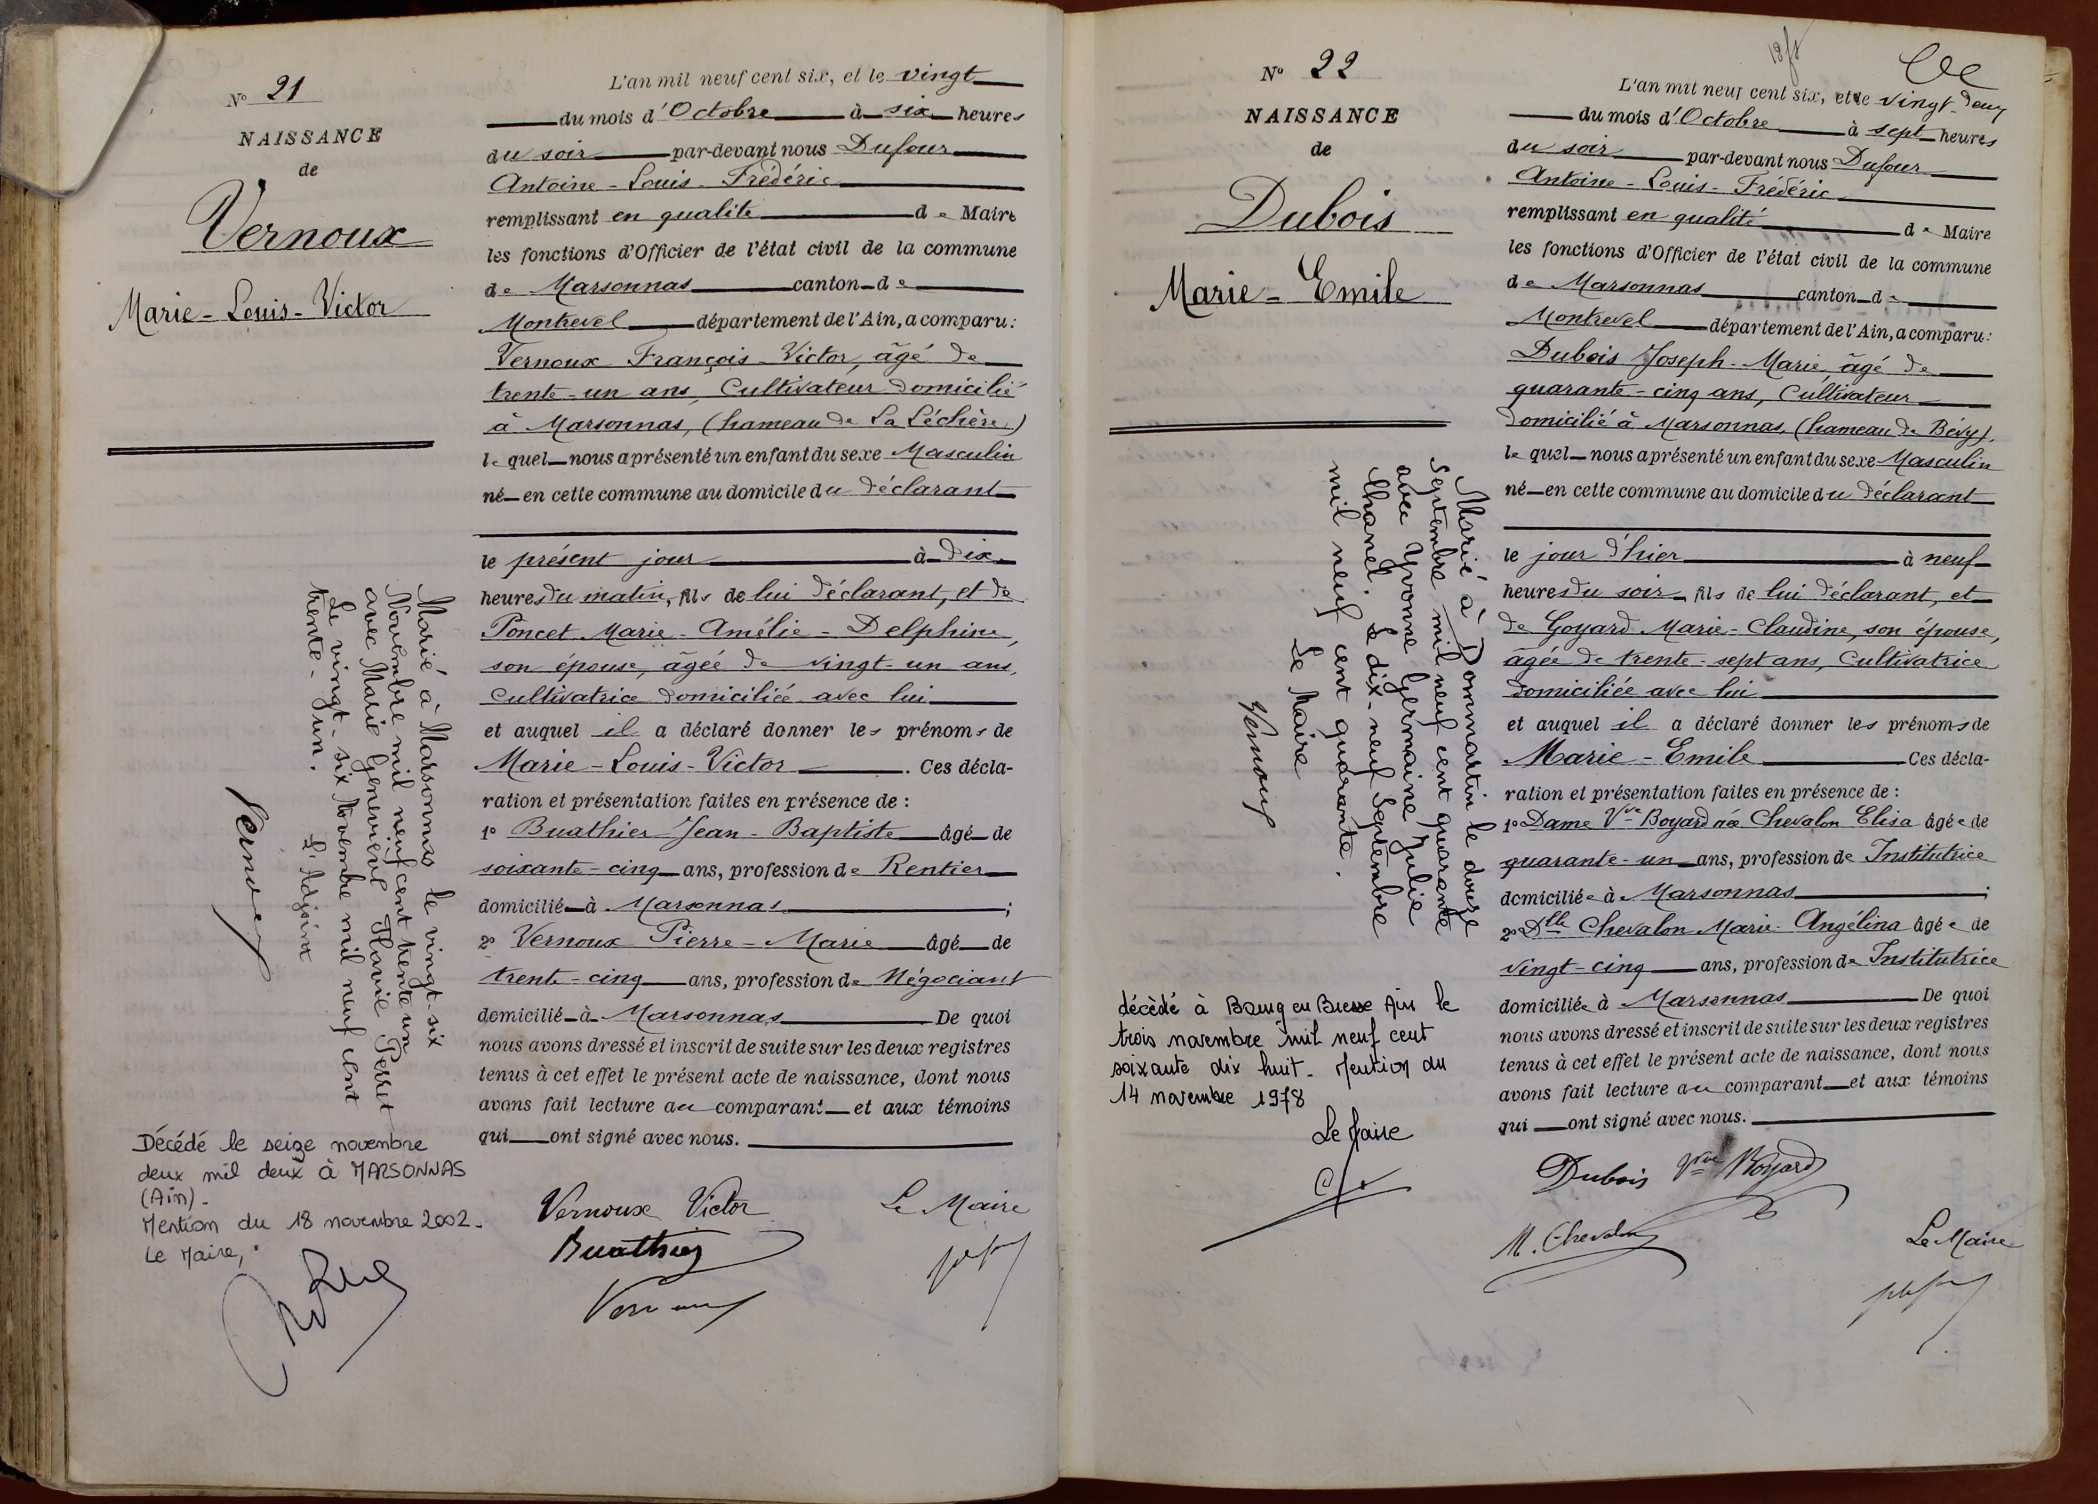 Nº 21
NAISSANCE
de
Vernoux
Marie-Louis-Victor
L'an mil neuf cent six, et le vingt
du mois d'Octobre à six heures
du soir par-devant nous Dufour
Antoine-Louis-Frédéric
remplissant en qualité de Maire
les fonctions d'Officier de l'état civil de la commune
de Marsonnas canton de
Montrevel département de l'Ain, a comparu :
Vernoux François-Victor, âgé de
trente-un ans, Cultivateur domicilié
à Marsonnas, (hameau de La Léchère)
lequel nous a présenté un enfant du sexe Masculin
né en cette commune au domicile du déclarant
le présent jour à dix
heures du matin, fils de lui déclarant, et de
Poncet Marie-Amélie-Delphine,
son épouse, âgée de vingt-un ans,
Cultivatrice domiciliée avec lui
et auquel il a déclaré donner les prénoms de
Marie-Louis-Victor. Ces décla-
ration et présentation faites en présence de :
1º Buathier Jean-Baptiste âgé de
soixante-cinq ans, profession de Rentier
domicilié à Marsonnas ;
2º Vernoux Pierre-Marie âgé de
trent-cinq ans, profession de Négociant
domicilié à Marsonnas De quoi
nous avons dressé et inscrit de suite sur les deux registres
tenus à cet effet le présent acte de naissance, dont nous
avons fait lecture au comparant et aux témoins
qui ont signé avec nous.
Vernoux Victor Le Maire
Buathier
Marié à Marsonnas le vingt-six
Novembre mil neuf cent trente un
avec Marie Geneviève Flavie Perret
Le vingt-six Novembre mil neuf cent
trente-un. L'Adjoint
Vernoux
Décédé le seize novembre
deux mil deux à MARSONNAS
(Ain).
Mention du 18 novembre 2002.
Le Maire,
Nº 22
NAISSANCE
de
Dubois
Marie-Emile
L'an mil neuf cent six, et le vingt-deux
du mois d'Octobre à sept heures
du soir par-devant nous Dufour
Antoine-Louis-Frédéric
remplissant en qualité de Maire
les fonctions d'Officier de l'état civil de la commune
de Marsonnas canton de
Montrevel département de l'Ain, a comparu :
Dubois Joseph-Marie, âgé de
quarante-cinq ans, Cultivateur
domicilié à Marsonnas, (hameau de Bévy),
lequel nous a présenté un enfant du sexe Masculin
né en cette commune au domicile du déclarant
le jour d'hier à neuf
heures du soir fils de lui déclarant, et
de Goyard Marie-Claudine, son épouse,
âgée de trente-sept ans, Cultivatrice
domiciliée avec lui
et auquel il a déclaré donner les prénoms de
Marie-Emile Ces décla-
ration et présentation faites en présence de :
1º Dame Vve Boyard née Chevalon Elisa âgée de
quarante-un ans, profession de Institutrice
domiciliée à Marsonnas ;
2º Dlle Chevalon Marie-Angélina âgée de
vingt-cinq ans, profession de Institutrice
domiciliée à Marsonnas De quoi
nous avons dressé et inscrit de suite sur les deux registres
tenus à cet effet le présent acte de naissance, dont nous
avons fait lecture au comparant et aux témoins
qui ont signé avec nous.
Dubois Vve Boyard
M. Chevalon Le Maire
Marié à Dommartin le douze
Septembre mil neuf cent quarante
avec Yvonne Germaine Julie
Chanel. Le dix-neuf Septembre
mil neuf cent quarante.
Le Maire
Vernoux
décédé à Bourg en Bresse Ain le
trois novembre mil neuf cent
soixante dix huit. Mention du
14 novembre 1978
Le Maire